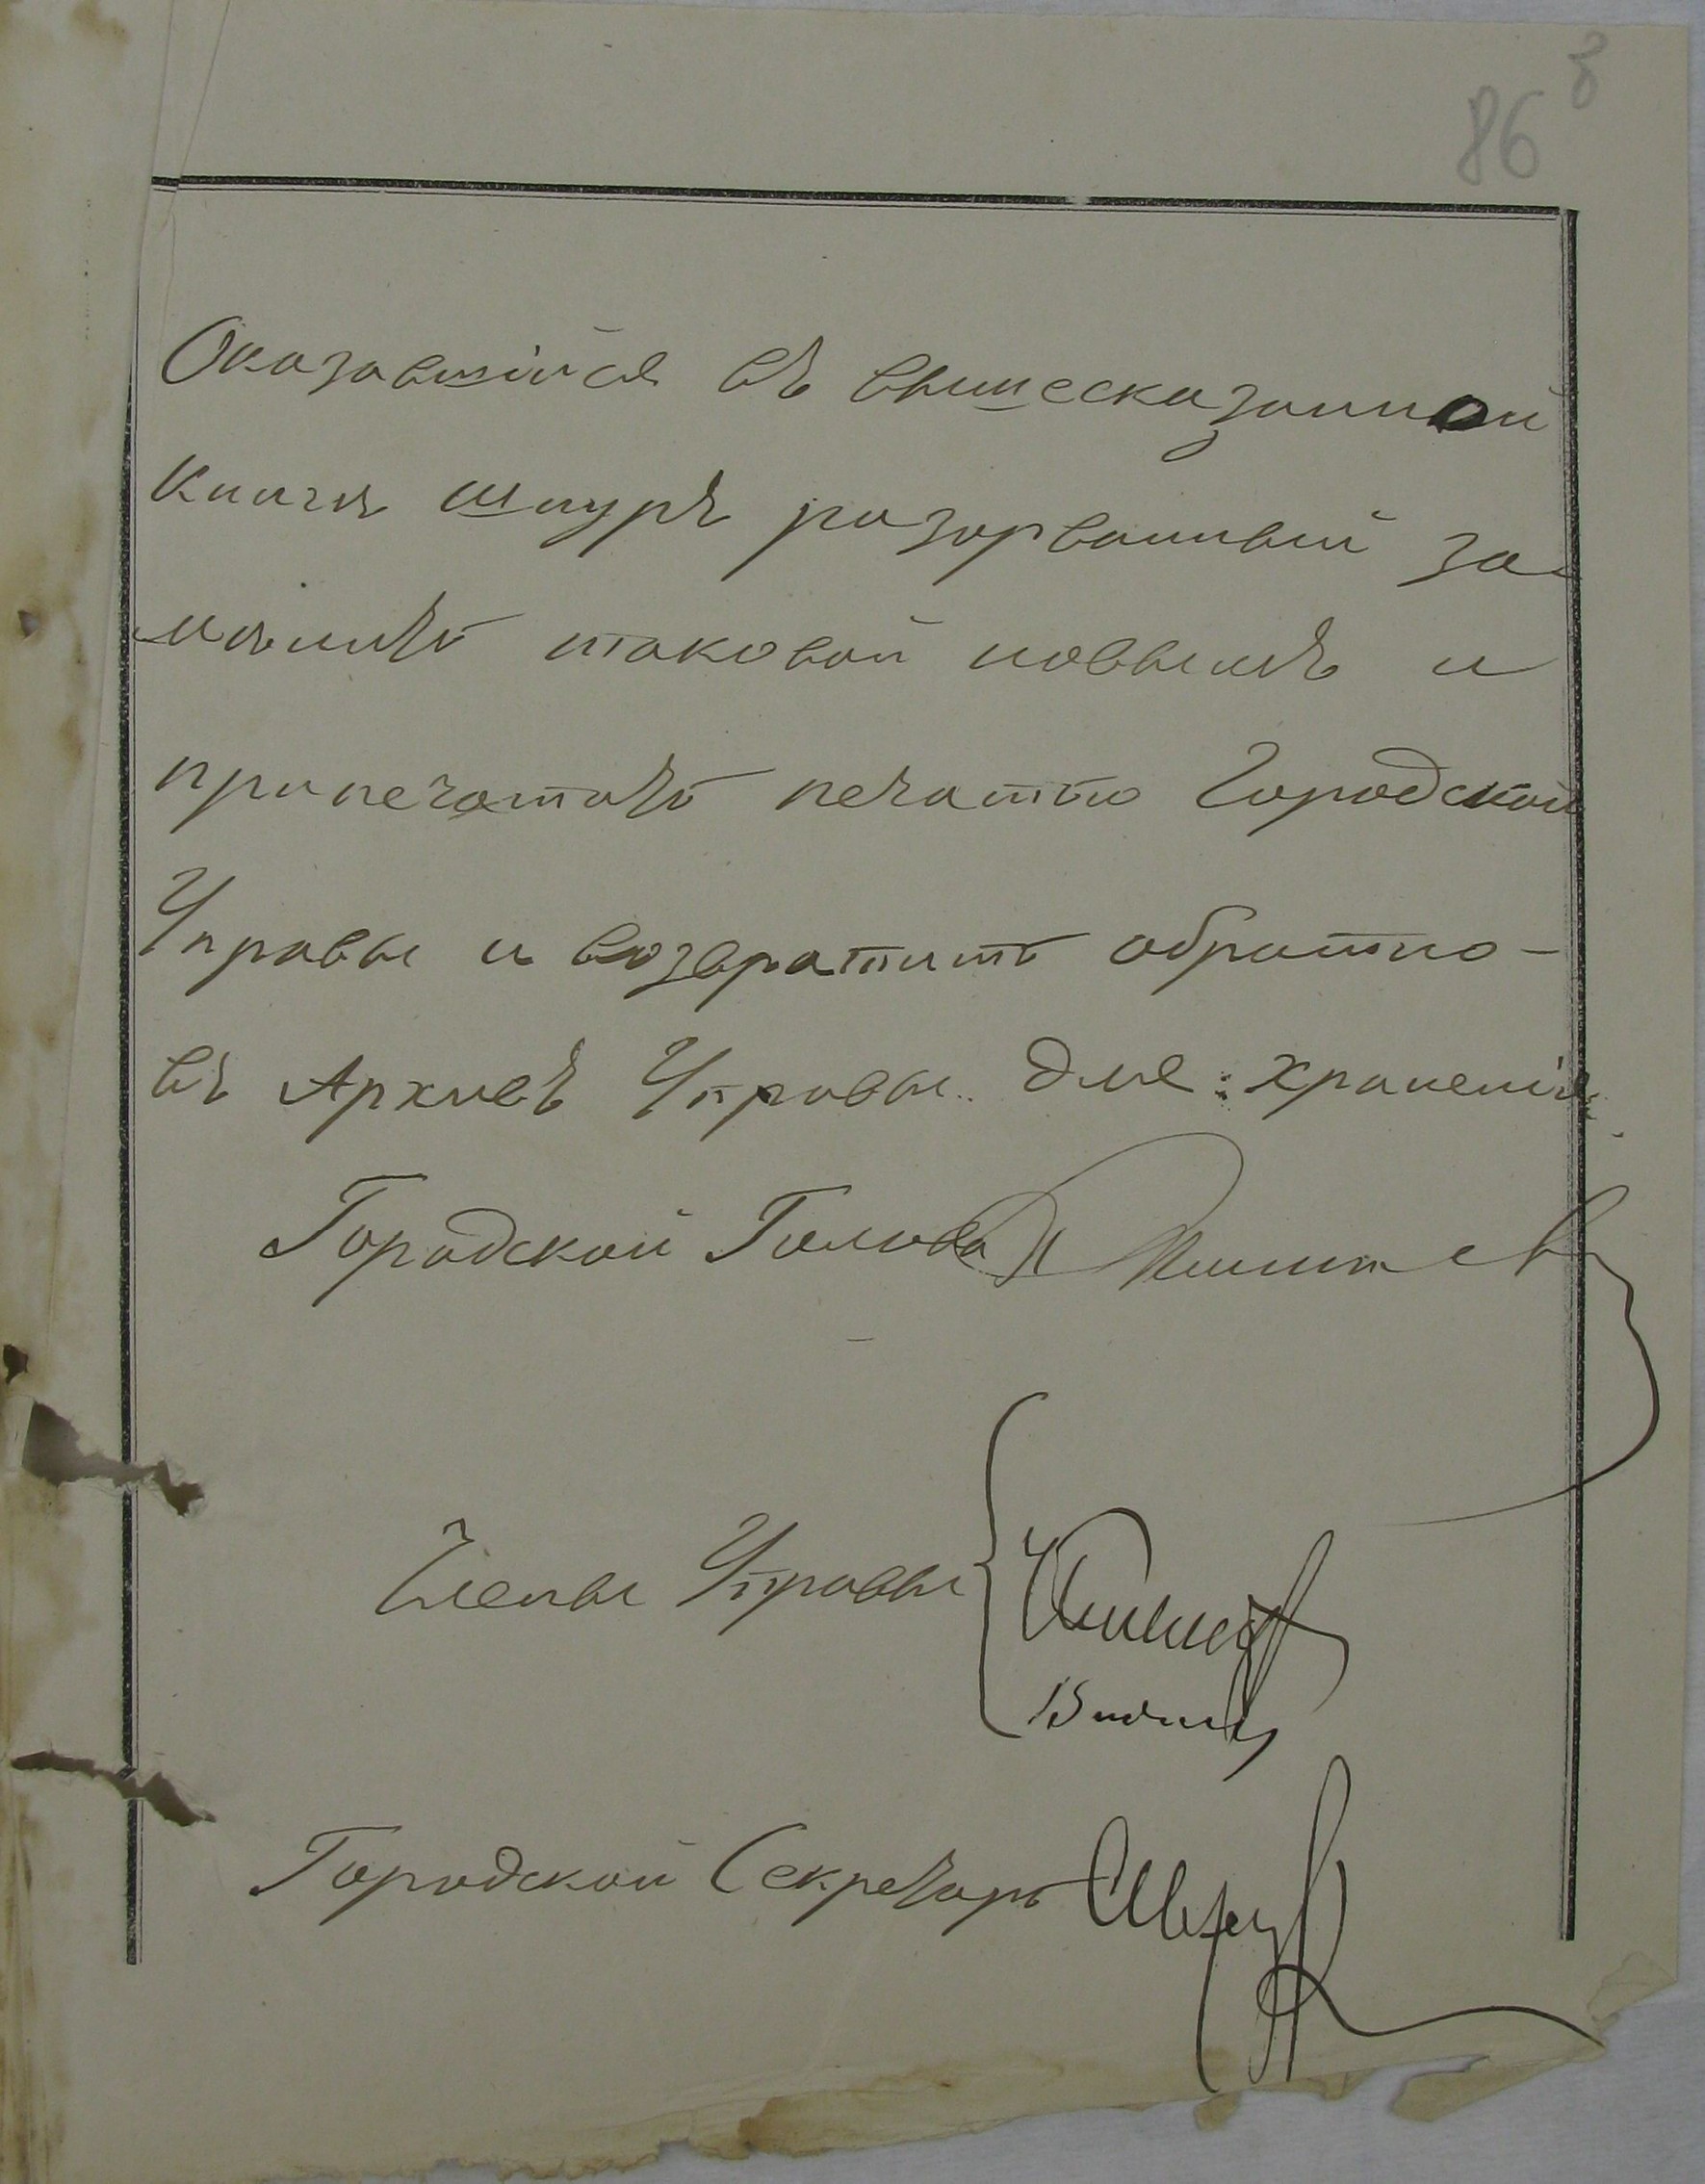 86
Оказавшійся въ вышесказанной
книгѣ шнуръ разорванный за-
мѣнить таковой новымъ и
припечатать печатью Городской
Управы и возвратить обратно-
въ Архивъ Управы для храненія.
Городской Голова
Члены Управы
Городской Секретарь